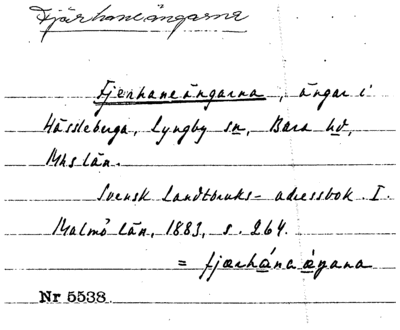 Fjärhaneängarna
Fjerhaneängarna, ängar i
Hässleberga, Lyngby sn, Bara hd,
Mhs län.
Svensk Landtbruks-adressbok I.
Malmö län, 1883, s. 264.
= fjærhána ægana
Nr 5538